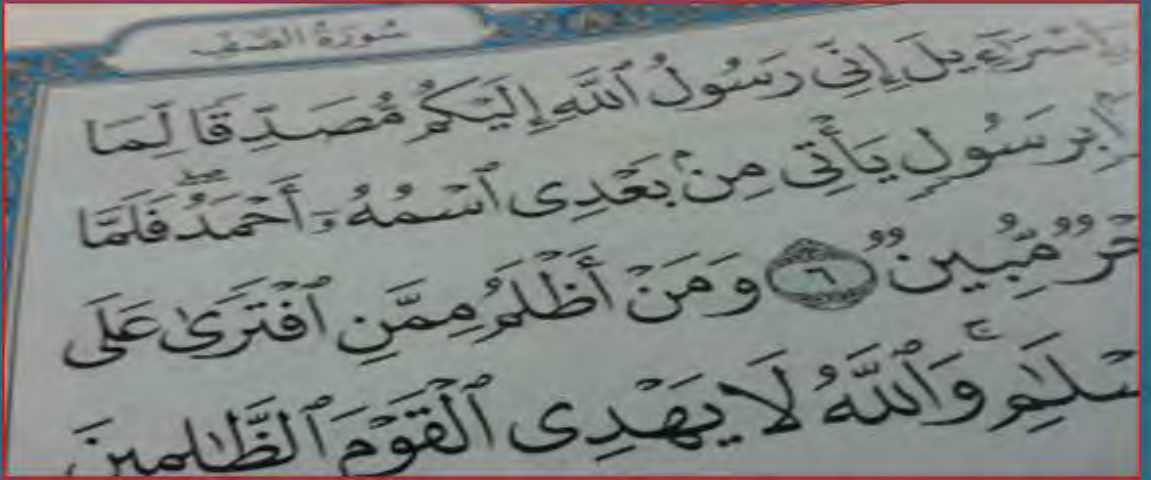 سُورَةُ الصَّفِّ
إِسْرَٰٓءِيلَ إِنِّى رَسُولُ ٱللَّهِ إِلَيْكُم مُّصَدِّقًا لِّمَا
بِرَسُولٍ يَأْتِى مِنۢ بَعْدِى ٱسْمُهُۥٓ أَحْمَدُ ۖ فَلَمَّا
مُّبِينٌ ٦ وَمَنْ أَظْلَمُ مِمَّنِ ٱفْتَرَىٰ عَلَى
وَٱللَّهُ لَا يَهْدِى ٱلْقَوْمَ ٱلظَّٰلِمِينَ